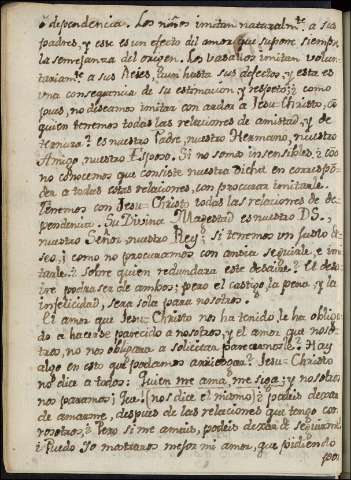 ò dependencia. Los niños imitan naturalm.te a sus
padres, y este es un efecto del amor que supone siempre
la semejanza del origen. Los basallos imitan volun-
tariam.te a sus Reies, aun hasta sus defectos, y esta es
una consequencia de su estimacion y respeto; ¿ como
pues, no deseamos imitar con ardor a Jesu-Christo, co
quien tenemos todas las relaciones de amistad, y de
ternura? es nuestro Padre, nuestro Hermano, nuestro
Amigo, nuestro Esposo. Si no somos insensibles, ¿ cóo
no conocemos que consiste nuestra dicha en correspō-
der a todas estas relaciones, con procurar imitarle.
Tenemos con Jesu-Christo todas las relaciones de de-
pendencia. Su Divina Magestad es nuestro DS.,
nuestro Señor, nuestro Rey; si tenemos un justo de-
seo, ¿ como no procuramos con ansia seguirle, e imi-
tarle? Sobre quien redundara este desaire? El desa-
ire podra ser de ambos; pero el castigo, la pena, y la
infelicidad, sera sola para nosotros.
El amor que Jesu-Christo nos ha tenido, le ha obliga-
do a hacerse parecido a nosotros, y el amor que noso-
tros, no nos obligara a solicitar parecernosle? Hay
algo en esto que podamos arriesgar? Jesu-Christo
nos dice a todos: Quien me ama, me siga; y nosotros
nos paramos; Que! (nos dice el mismo) ¿ podeis dexar
de amarme, despues de las relaciones que tengo con
vosotros? Pero si me amais, podeis dexar de seguirme?
¿ Puedo Yo mostraros mejor mi amor, que pidiendo